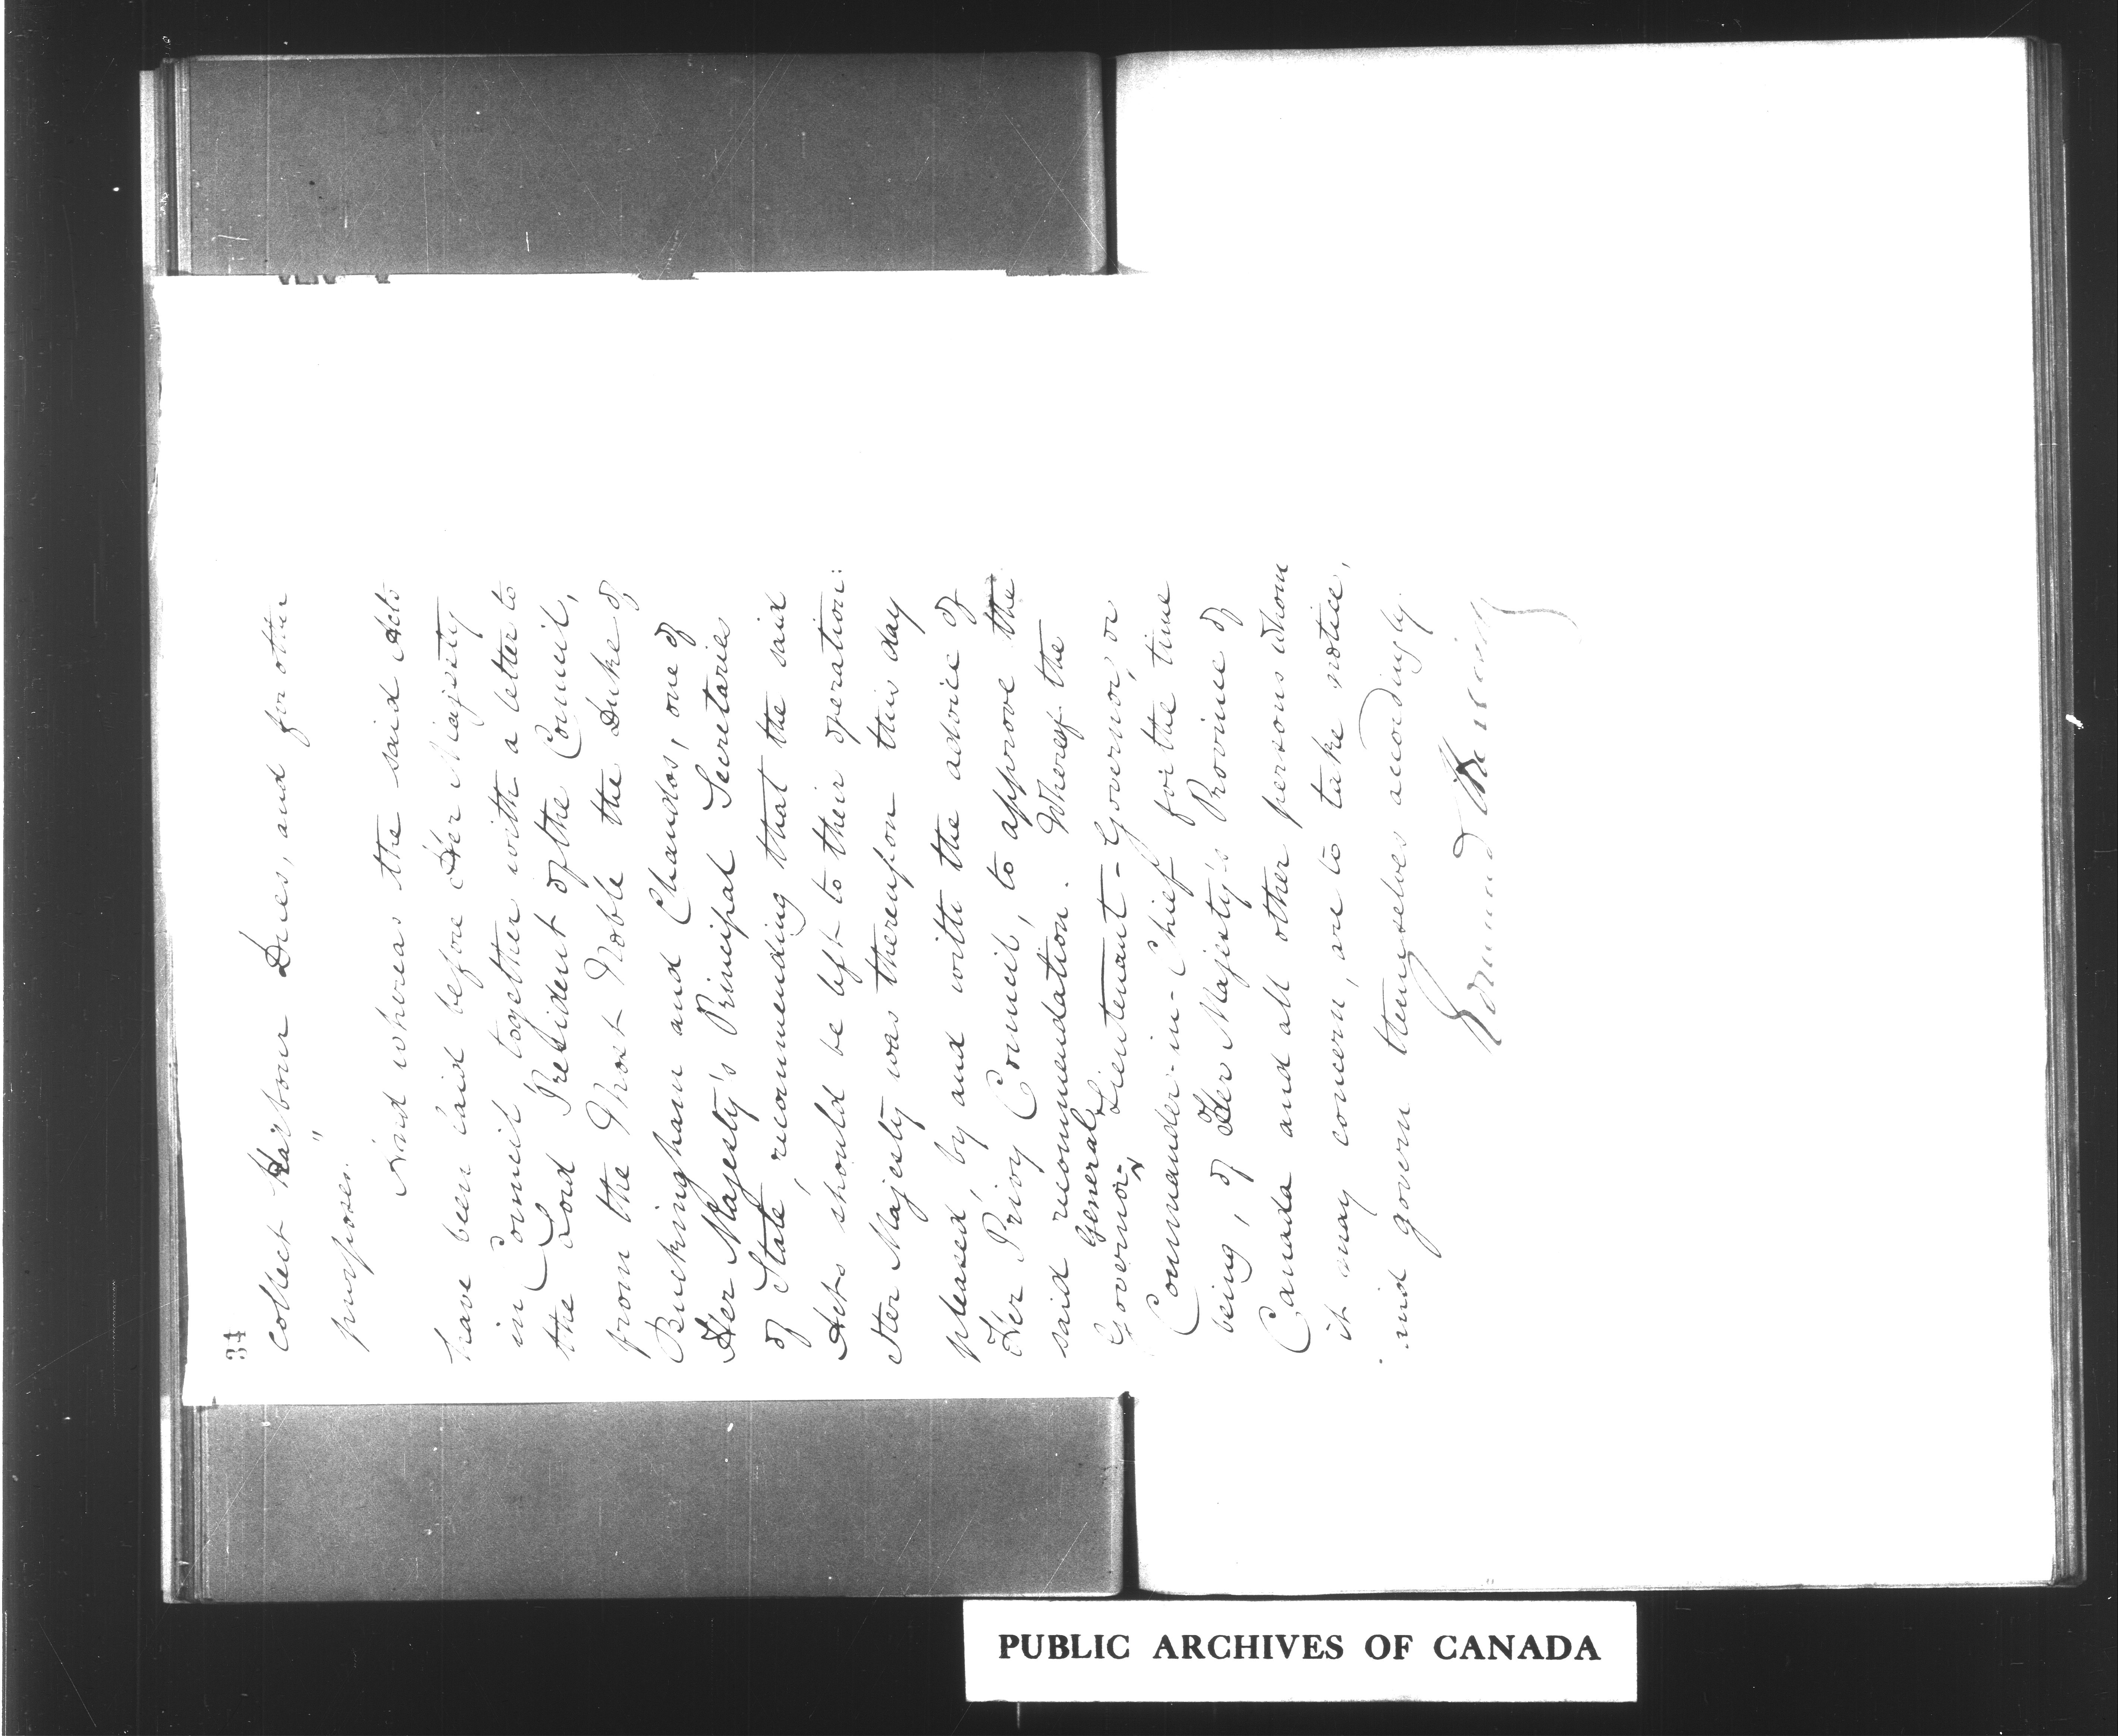 34
collect Harbour Dues, and for other
purposes."
And whereas the said Acts
have been laid before Her Majesty
in Council together with a letter to
the Lord President of the Council,
from the Most Noble the Duke of
Buckingham and Chandos, one of
Her Majesty's Principal Secretaries
of State, recommending that the said
Acts should be left to their operation:
Her Majesty was thereupon this day
pleased, by and with the advice of
Her Privy Council, to approve the
said recommendation. Whereof the
Governor-General, Lieutenant-Governor, or
Commander-in-Chief for the time
being, of Her Majesty's Province of
Canada and all other persons whom
it may concern, are to take notice,
and govern themselves accordingly.
Edmund Harrison
PUBLIC ARCHIVES OF CANADA